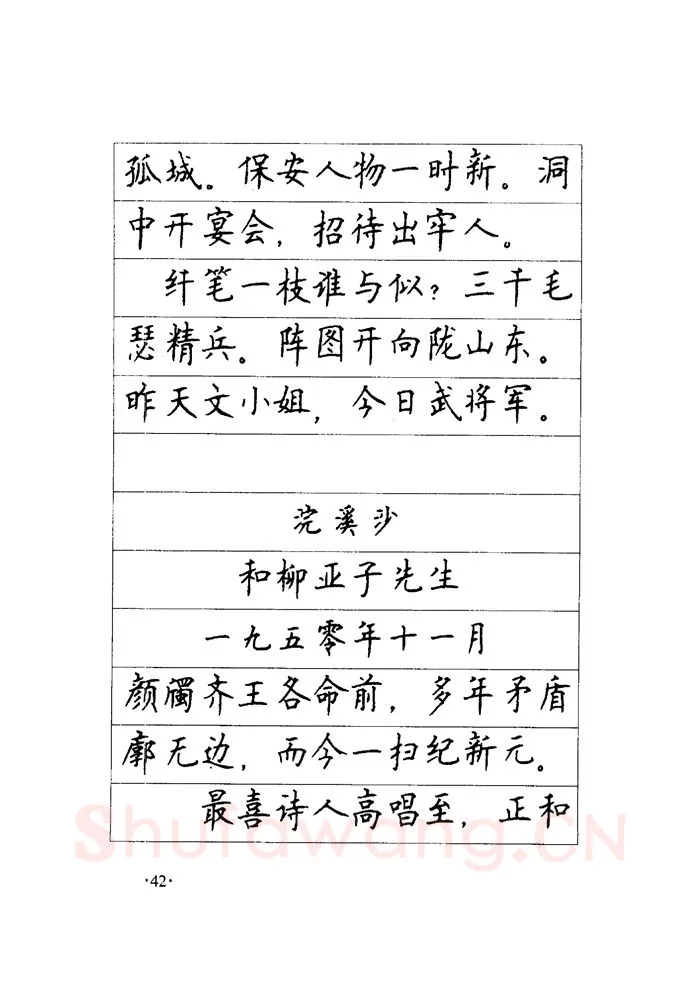 孤城。保安人物一时新。洞
中开宴会，招待出牢人。
纤笔一枝谁与似？三千毛
瑟精兵。阵图开向陇山东。
昨天文小姐，今日武将军。
浣溪沙
和柳亚子先生
一九五零年十一月
颜斶齐王各命前，多年矛盾
廓无边，而今一扫纪新元。
最喜诗人高唱至，正和
Shufawang.CN
·42·